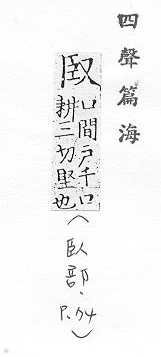 四聲篇海
臤
口間戶千口
耕三切堅也
(臥部、P.74)